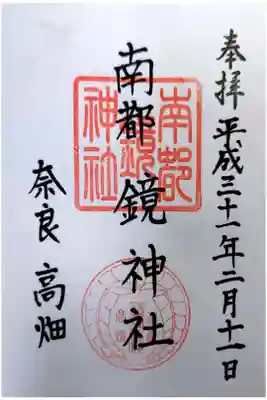 奉拝 平成三十一年二月十一日
南都鏡神社
奈良 高畑
南都鏡神社